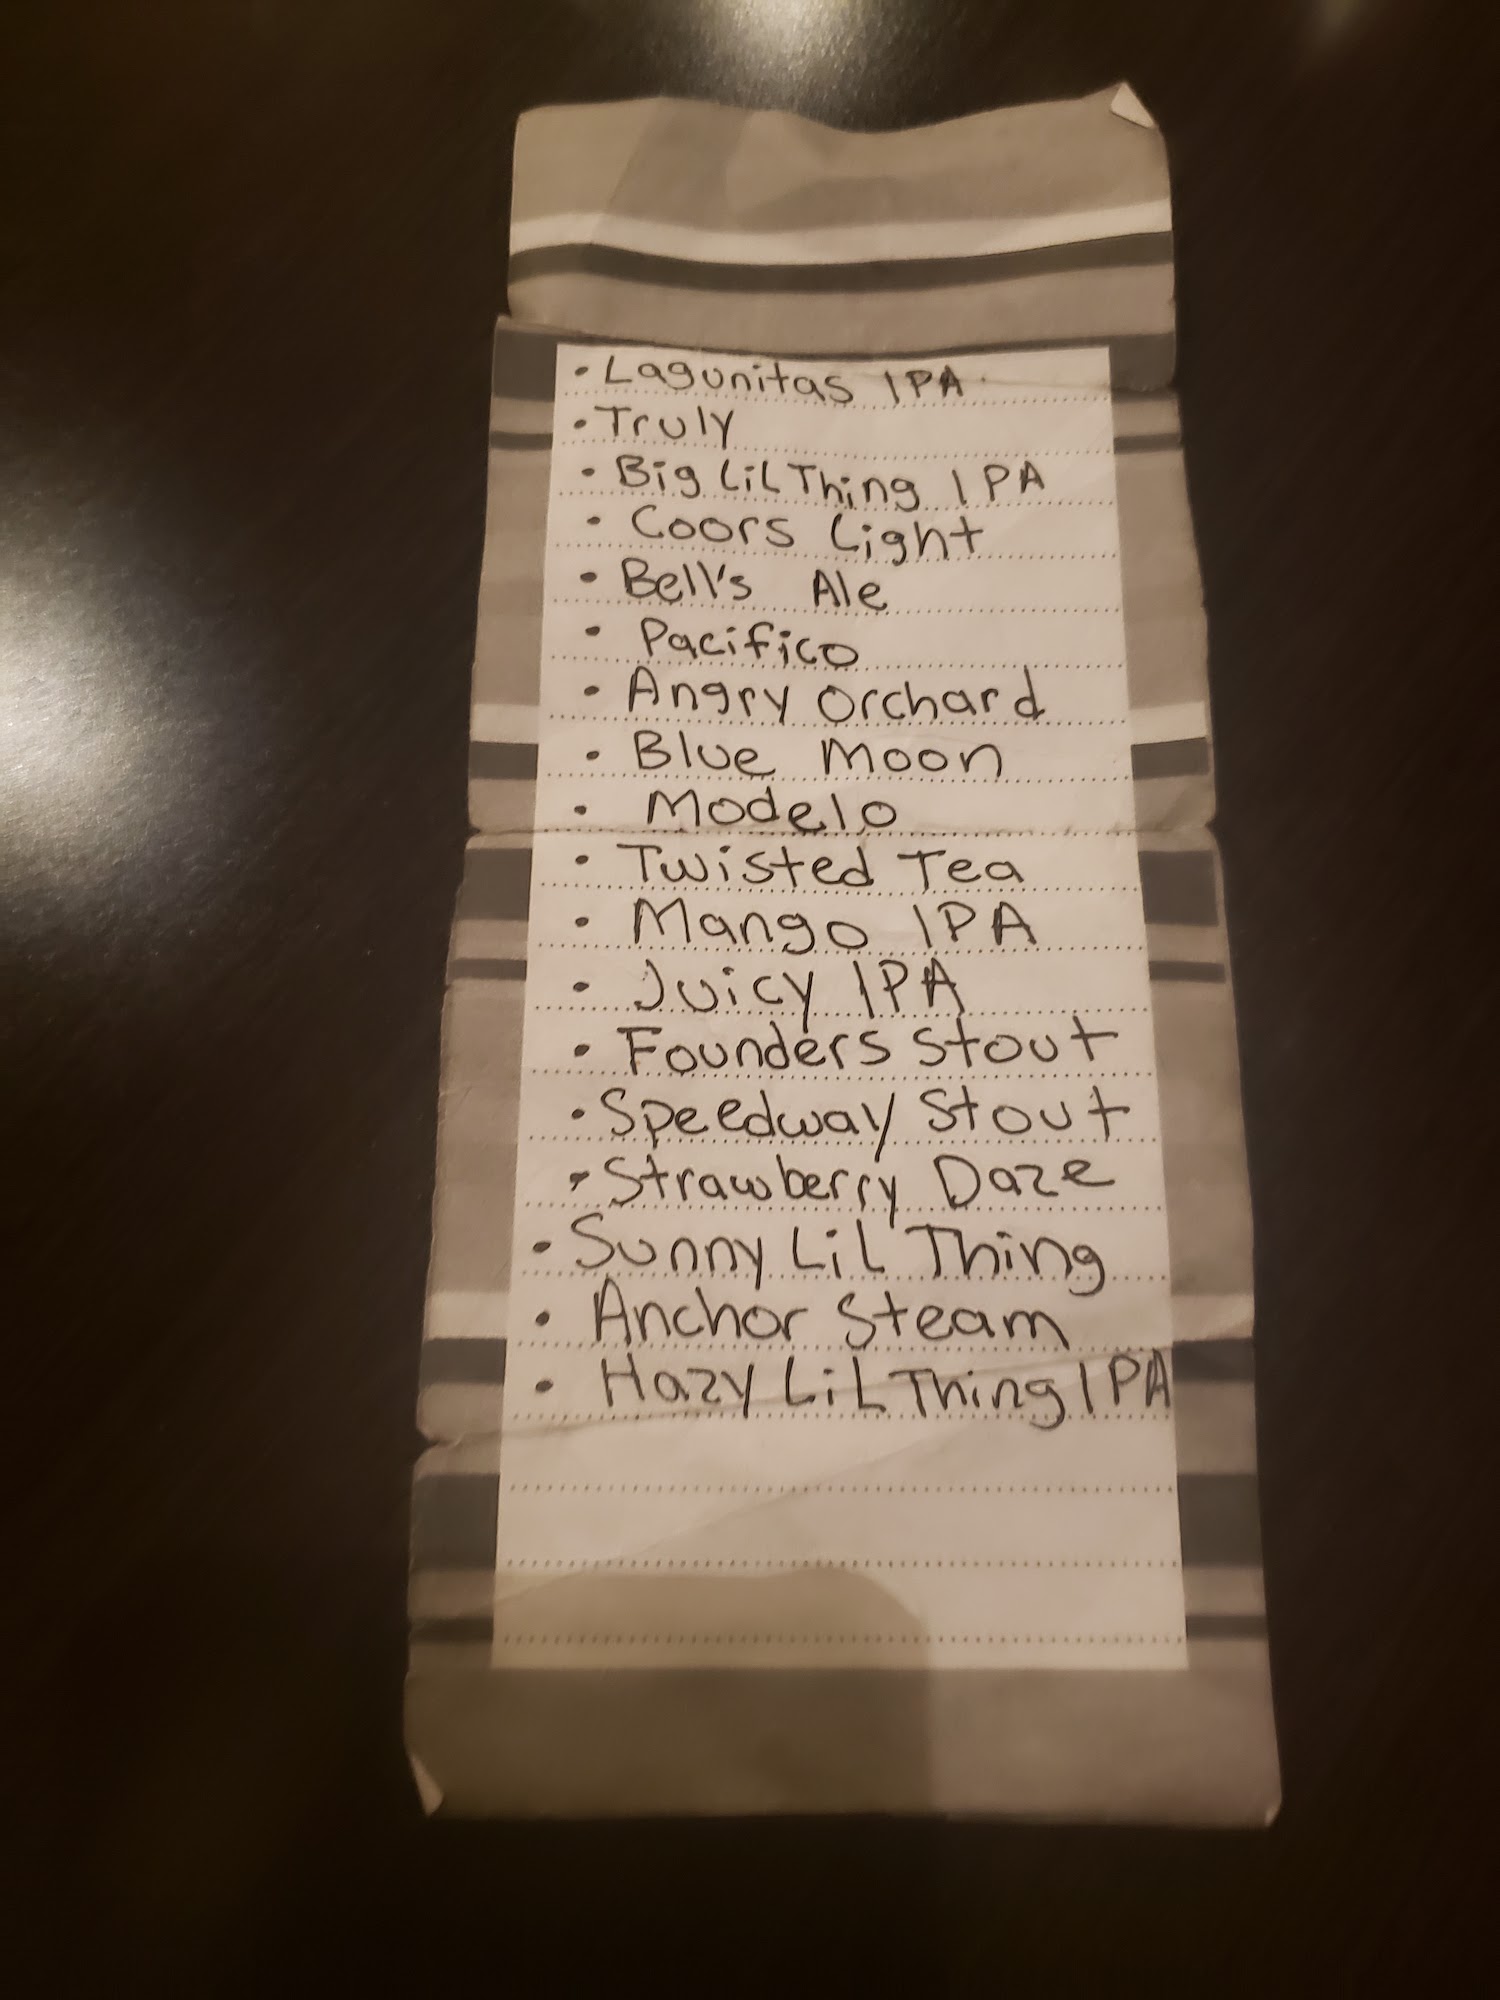 • Lagunitas IPA
• Truly
• Big LiL Thing IPA
• Coors Light
• Bell's Ale
• Pacifico
• Angry Orchard
• Blue Moon
• Modelo
• Twisted Tea
• Mango IPA
• Juicy IPA
• Founders Stout
• Speedway Stout
• Strawberry Daze
• Sunny LiL Thing
• Anchor Steam
• Hazy LiL Thing IPA